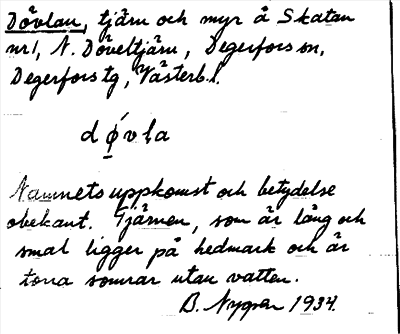 Dövlan, tjärn och myr å Skatan
nr 1, N. Döveltjärn, Degerfors sn,
Degerfors tg, Västerb. l.
dø̄́vla
Namnets uppkomst och betydelse
obekant. Tjärnen, som är lång och
smal ligger på hedmark och är
torra somrar utan vatten.
B. Nygren 1934.